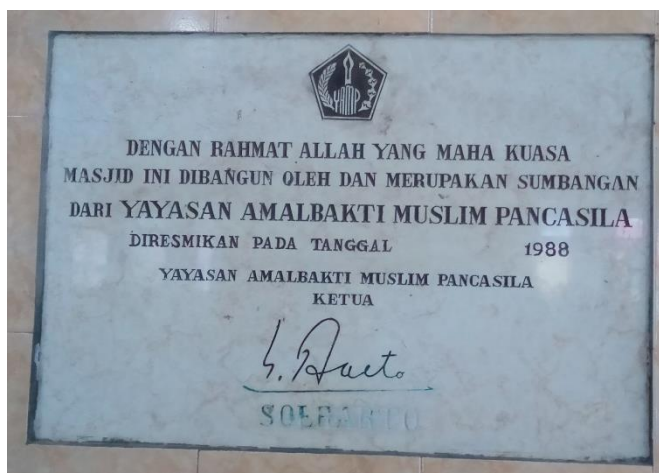 YAMP
DENGAN RAHMAT ALLAH YANG MAHA KUASA
MASJID INI DIBANGUN OLEH DAN MERUPAKAN SUMBANGAN
DARI YAYASAN AMALBAKTI MUSLIM PANCASILA
DIRESMIKAN PADA TANGGAL 1988
YAYASAN AMALBAKTI MUSLIM PANCASILA
KETUA
SOEHARTO